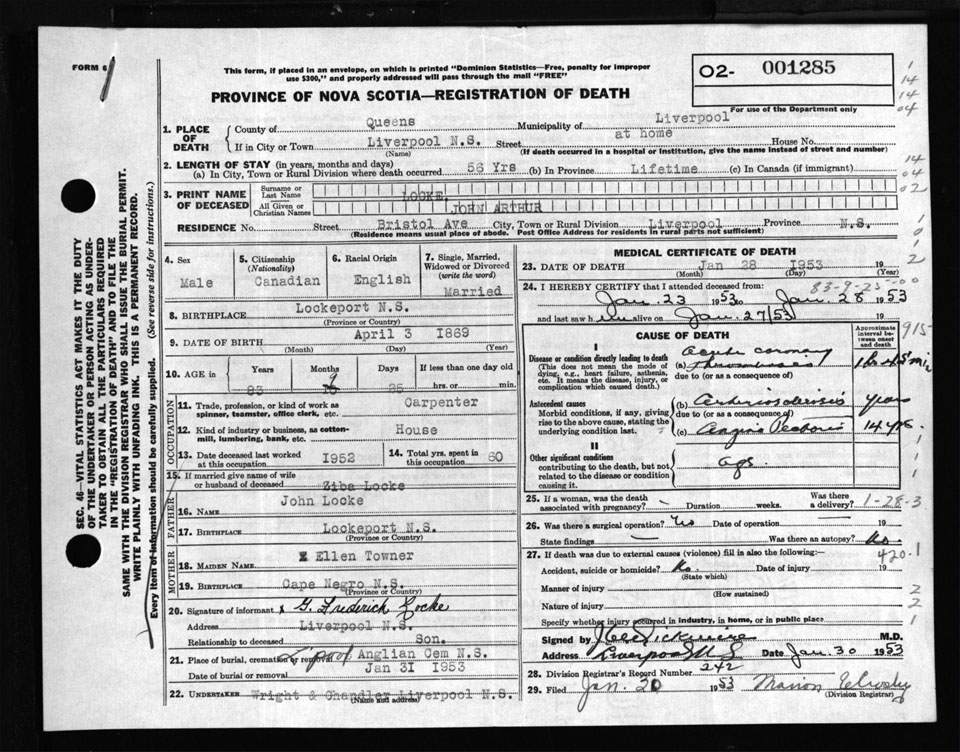 FORM 6
This form, if placed in an envelope, on which is printed "Dominion Statistics—Free, penalty for improper
use $300," and properly addressed will pass through the mail "FREE"
02- 001285
For use of the Department only
PROVINCE OF NOVA SCOTIA—REGISTRATION OF DEATH
1. PLACE OF DEATH
County of Queens Municipality of Liverpool
If in City or Town Liverpool N.S. Street at home House No.
(Name) (If death occurred in a hospital or institution, give the name instead of street and number)
2. LENGTH OF STAY (in years, months and days)
(a) In City, Town or Rural Division where death occurred 56 Yrs (b) In Province Lifetime (c) In Canada (if immigrant)
3. PRINT NAME OF DECEASED
Surname or Last Name LOCKE,
All Given or Christian Names JOHN ARTHUR
RESIDENCE No. Street Bristol Ave City, Town or Rural Division Liverpool Province N.S.
(Residence means usual place of abode. Post Office Address for residents in rural parts not sufficient)
4. Sex
Male
5. Citizenship (Nationality)
Canadian
6. Racial Origin
English
7. Single, Married, Widowed or Divorced (write the word)
Married
8. BIRTHPLACE Lockeport N.S.
(Province or Country)
9. DATE OF BIRTH April 3 1869
(Month) (Day) (Year)
10. AGE in Years Months Days If less than one day old
83 9 25 hrs. or min.
OCCUPATION
11. Trade, profession, or kind of work as spinner, teamster, office clerk, etc. Carpenter
12. Kind of industry or business, as cotton-mill, lumbering, bank, etc. House
13. Date deceased last worked at this occupation 1952
14. Total yrs. spent in this occupation 60
15. If married give name of wife or husband of deceased Ziba Locke
FATHER
16. Name John Locke
17. Birthplace Lockeport N.S.
(Province or Country)
MOTHER
18. Maiden Name Ellen Towner
19. Birthplace Cape Negro N.S.
(Province or Country)
20. Signature of informant x G. Frederick Locke
Address Liverpool N.S.
Relationship to deceased Son.
21. Place of burial, cremation or removal L'pool Anglian Cem N.S.
Date of burial or removal Jan 31 1953
22. UNDERTAKER Wright & Chandler Liverpool N.S.
(Name and address)
MEDICAL CERTIFICATE OF DEATH
23. DATE OF DEATH Jan 28 1953 19
(Month) (Day) (Year)
83-9-25-00
24. I HEREBY CERTIFY that I attended deceased from:
Jan. 23 1953 to Jan. 28 1953
and last saw him alive on Jan. 27/53 19
CAUSE OF DEATH
Approximate interval between onset and death
915
I
Disease or condition directly leading to death
(This does not mean the mode of dying, e.g., heart failure, asthenia, etc. It means the disease, injury, or complication which caused death.)
(a) Acute coronary Thrombosis
due to (or as a consequence of)
Antecedent causes
Morbid conditions, if any, giving rise to the above cause, stating the underlying condition last.
(b) Arteriosclerosis years
due to (or as a consequence of)
(c) Angina Pectoris 14 yrs.
II
Other significant conditions
contributing to the death, but not related to the disease or condition causing it.
Age.
25. If a woman, was the death associated with pregnancy? — Duration weeks. Was there a delivery?
1-28-3
26. Was there a surgical operation? Date of operation — 19
State findings — Was there an autopsy? No.
27. If death was due to external causes (violence) fill in also the following:—
420.1
Accident, suicide or homicide? No. Date of injury 19
(State which)
Manner of injury
(How sustained)
Nature of injury
Specify whether injury occurred in industry, in home, or in public place
Signed by M.D.
Address Liverpool N.S. Date Jan. 30 1953
28. Division Registrar's Record Number 242
29. Filed Jan. 1953 Marion
(Division Registrar)
SEC. 46—VITAL STATISTICS ACT MAKES IT THE DUTY
OF THE UNDERTAKER OR PERSON ACTING AS UNDER-
TAKER TO OBTAIN ALL THE PARTICULARS REQUIRED
IN THE "REGISTRATION OF DEATH" AND TO FILE THE
SAME WITH THE DIVISION REGISTRAR WHO SHALL ISSUE THE BURIAL PERMIT.
WRITE PLAINLY WITH UNFADING INK. THIS IS A PERMANENT RECORD.
Every item of information should be carefully supplied. (See reverse side for instructions.)